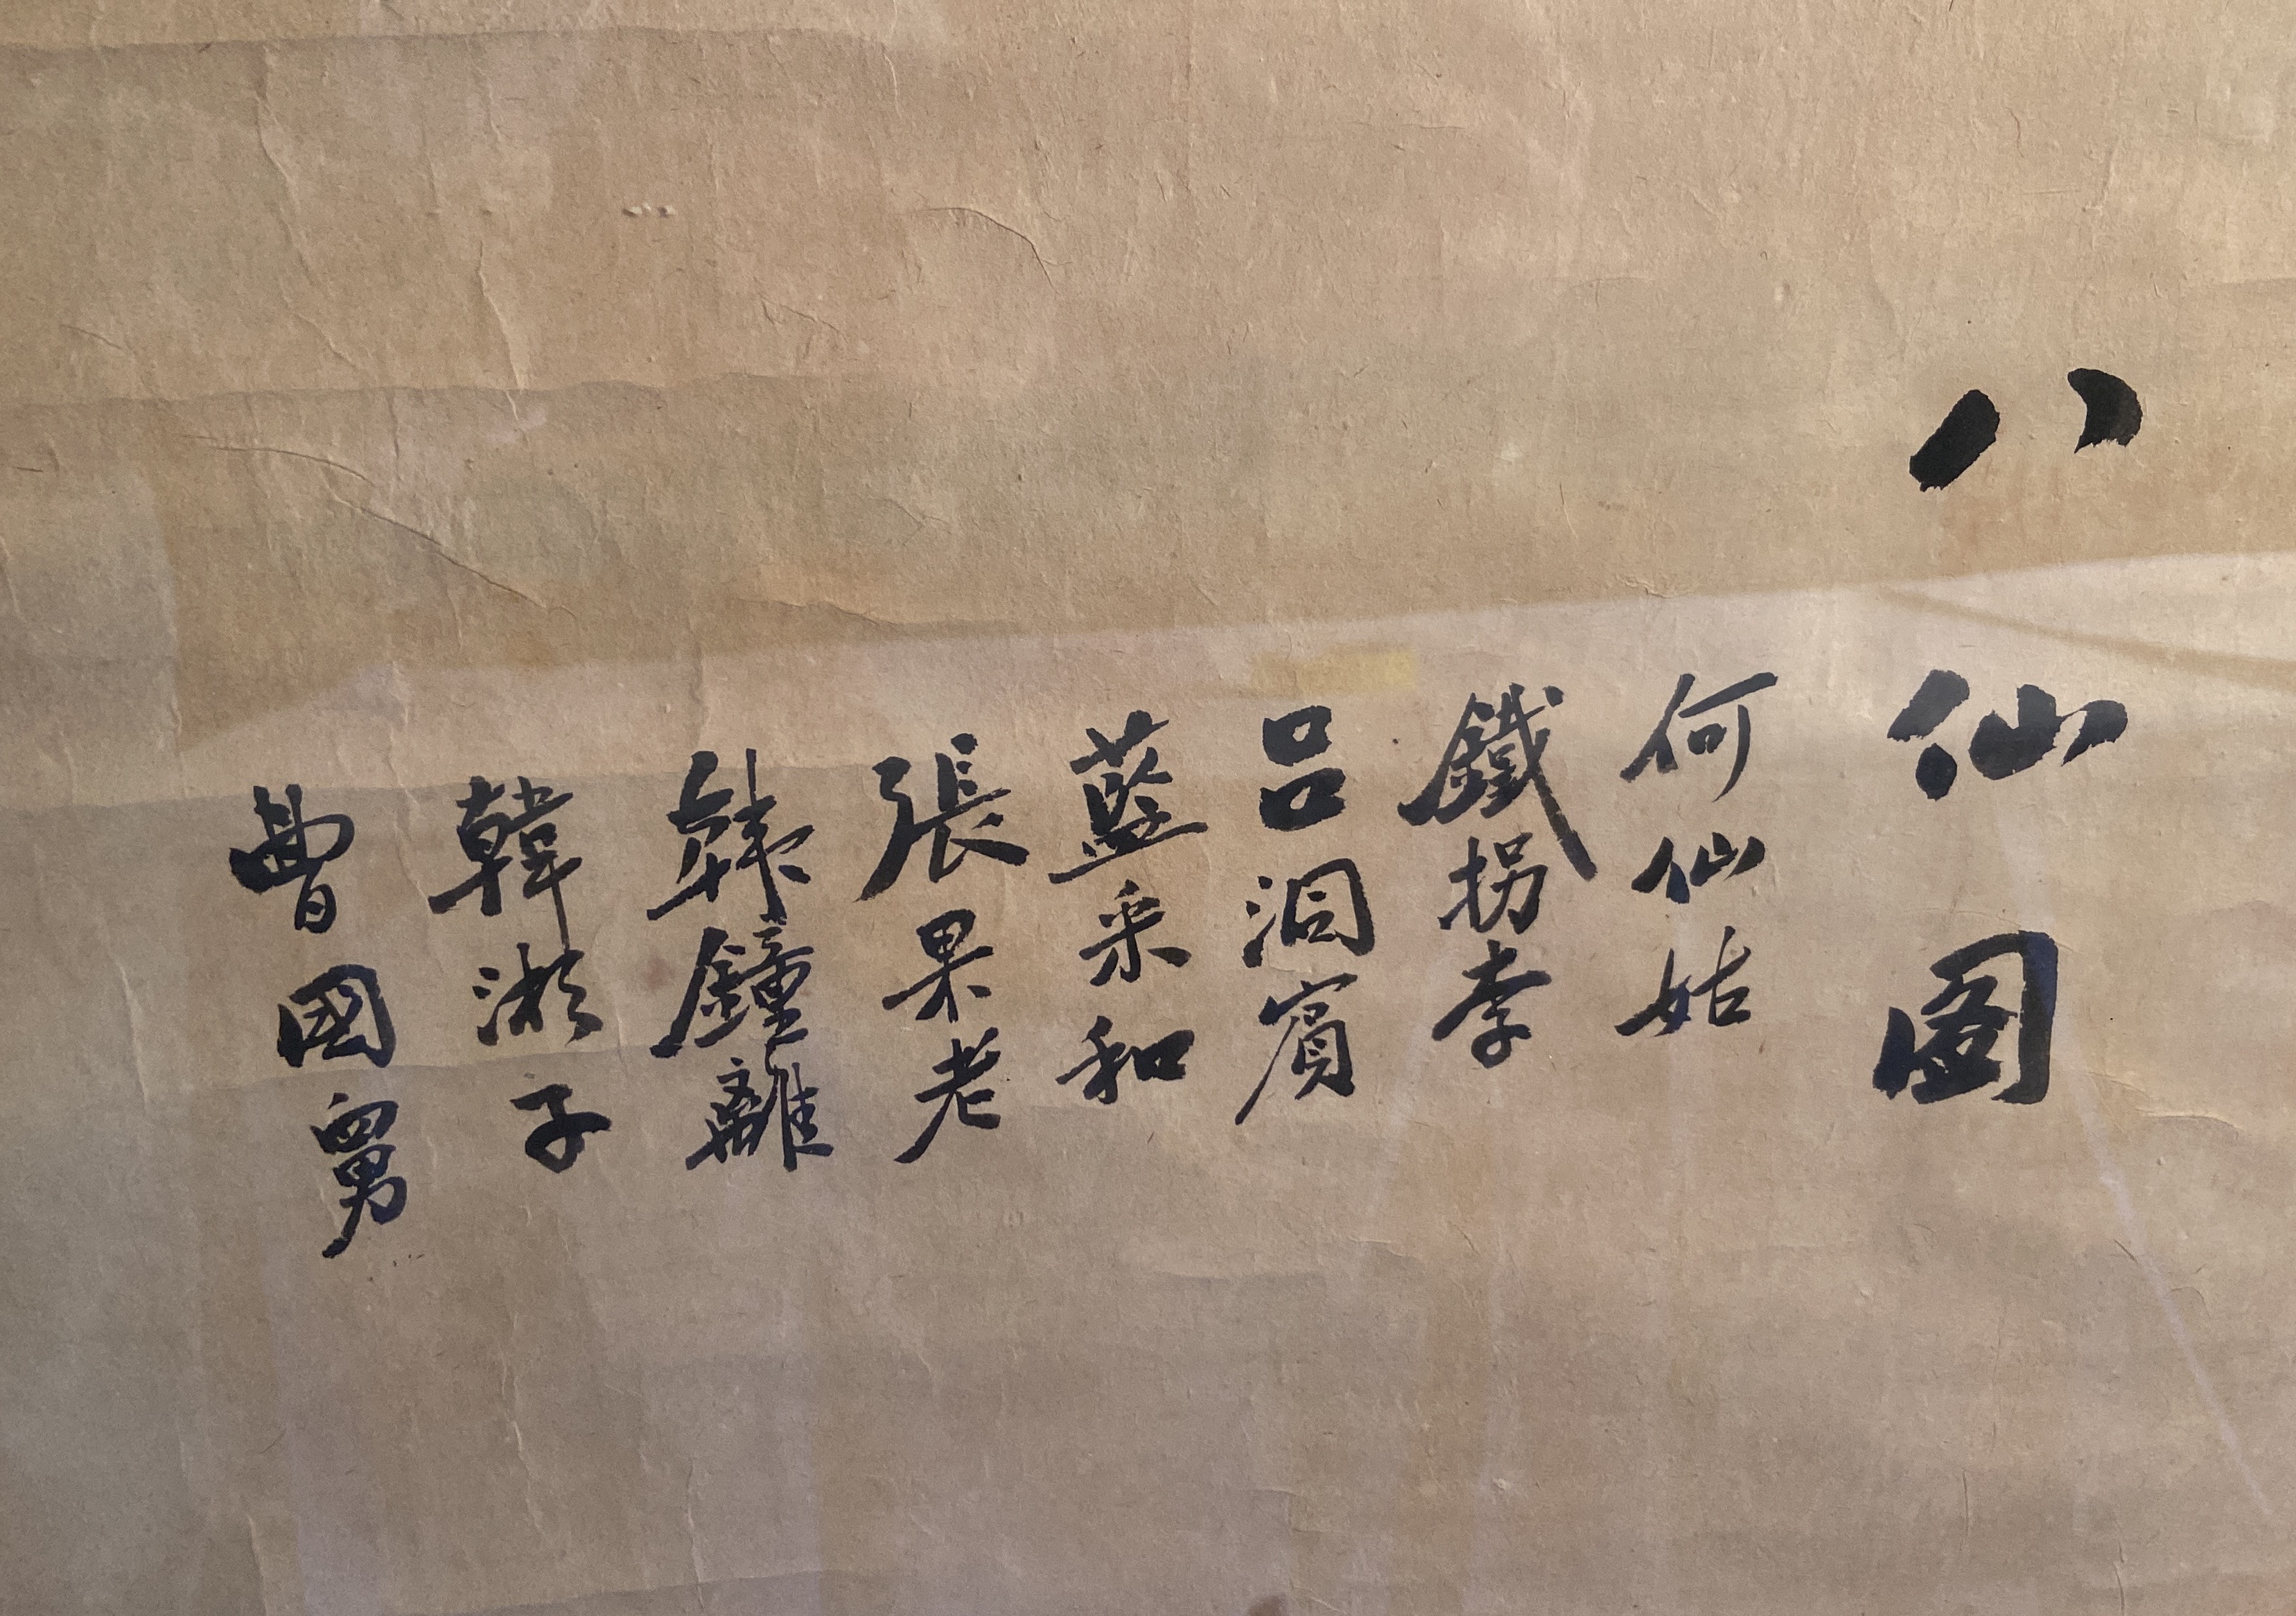 八仙图
何仙姑
鐵拐李
吕洞賓
藍采和
張果老
韩鐘離
韓湘子
曹國舅